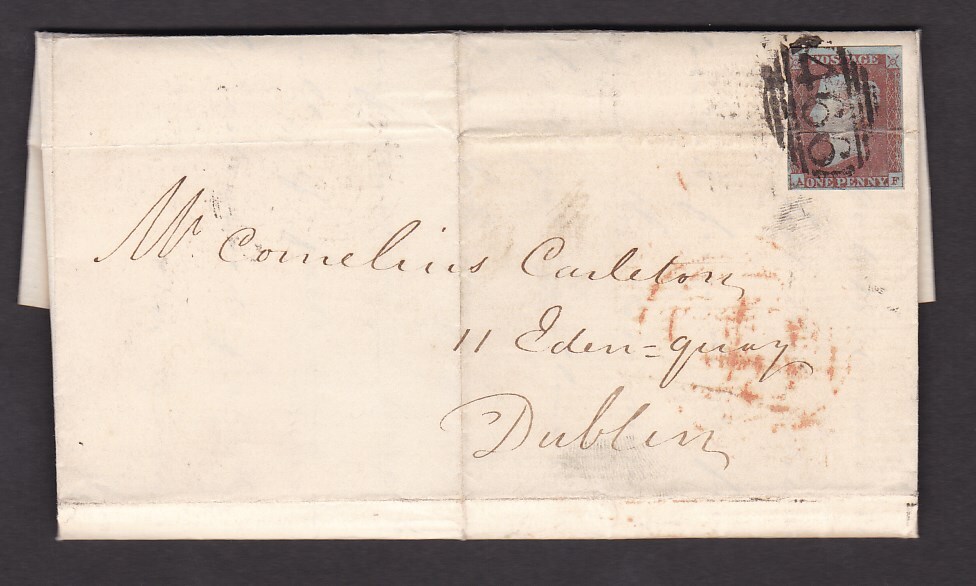 POSTAGE
466
A ONE PENNY F
Mr Cornelius Carleton
11 Eden=quay
Dublin